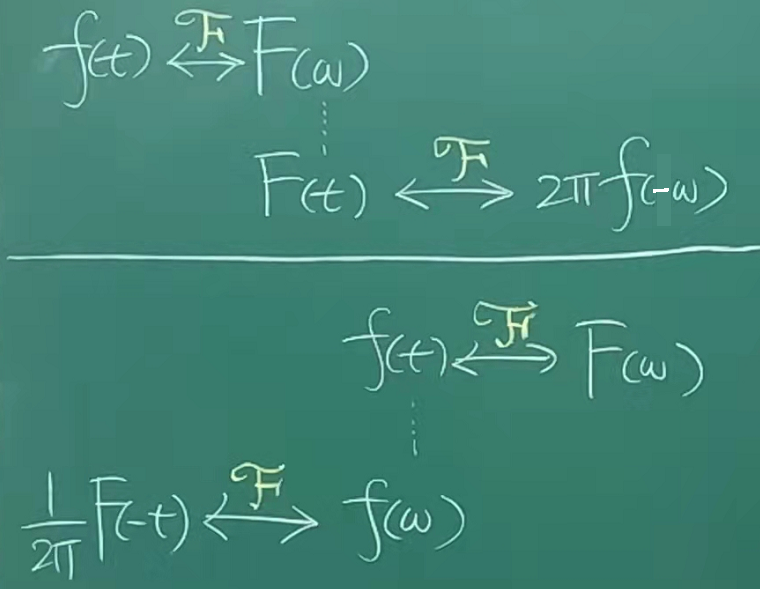 f(t) ⟷ℱ F(ω)
F(t) ⟷ℱ 2π f(-ω)
f(t) ⟷ℱ F(ω)
1/2π F(-t) ⟷ℱ f(ω)